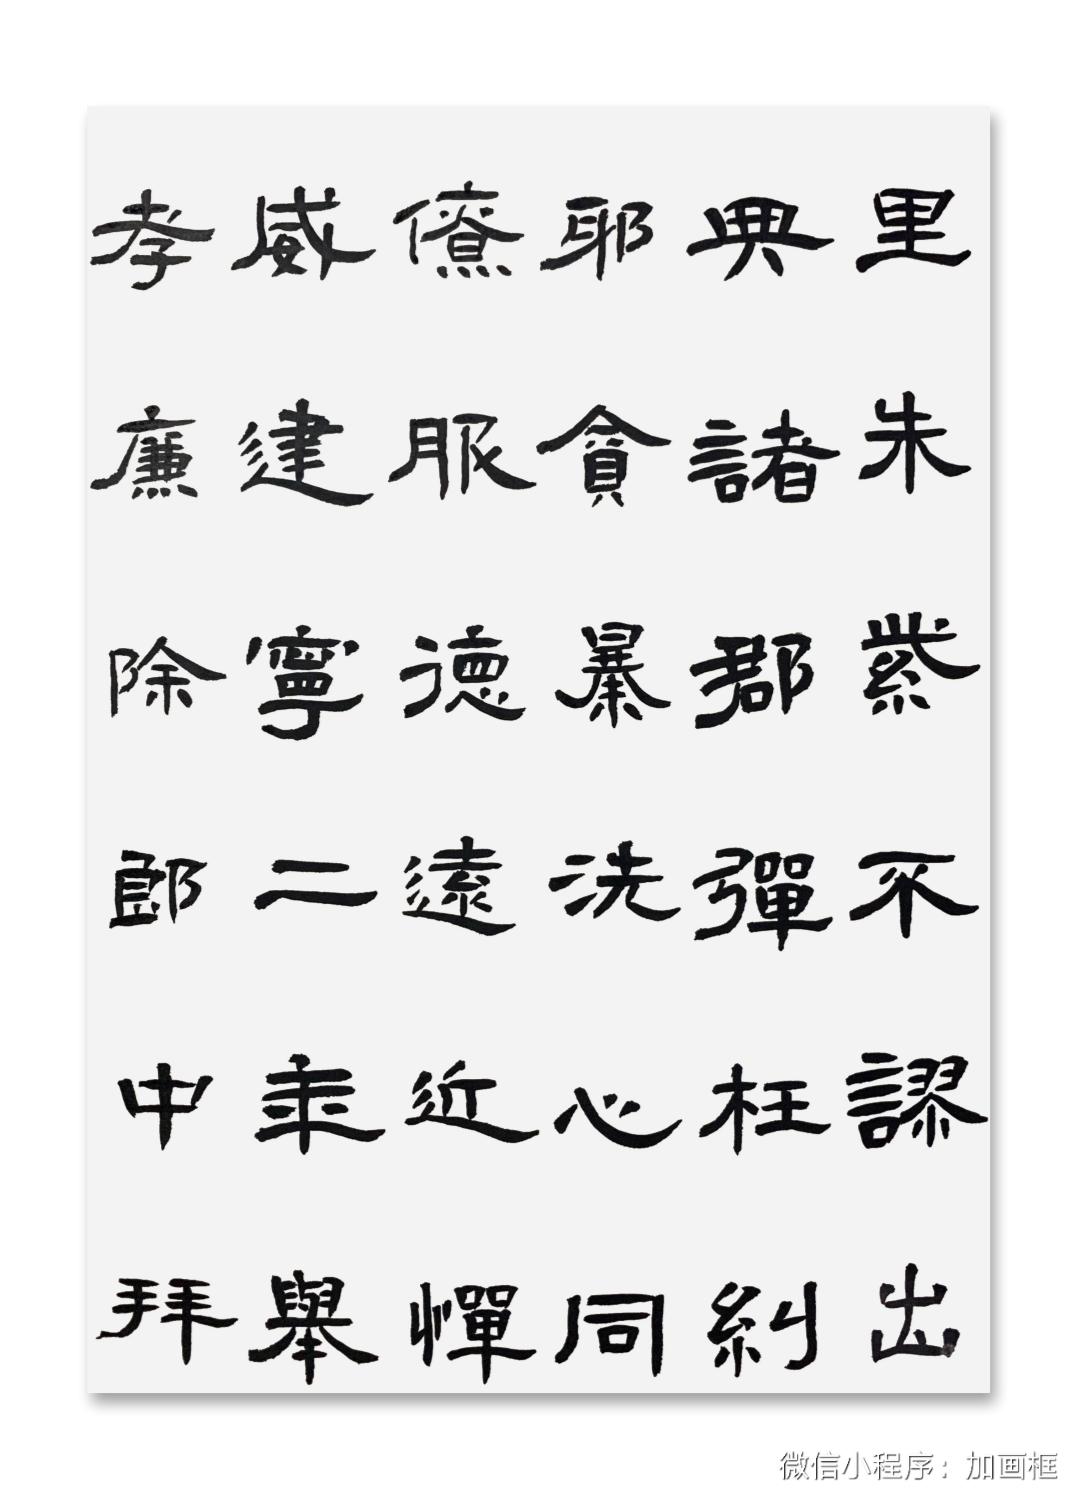 里朱紫不謬出
典諸郡彈枉糾
邪貪暴洗心同
僚服德遠近憚
威建寧二年舉
孝廉除郎中拜
微信小程序：加画框